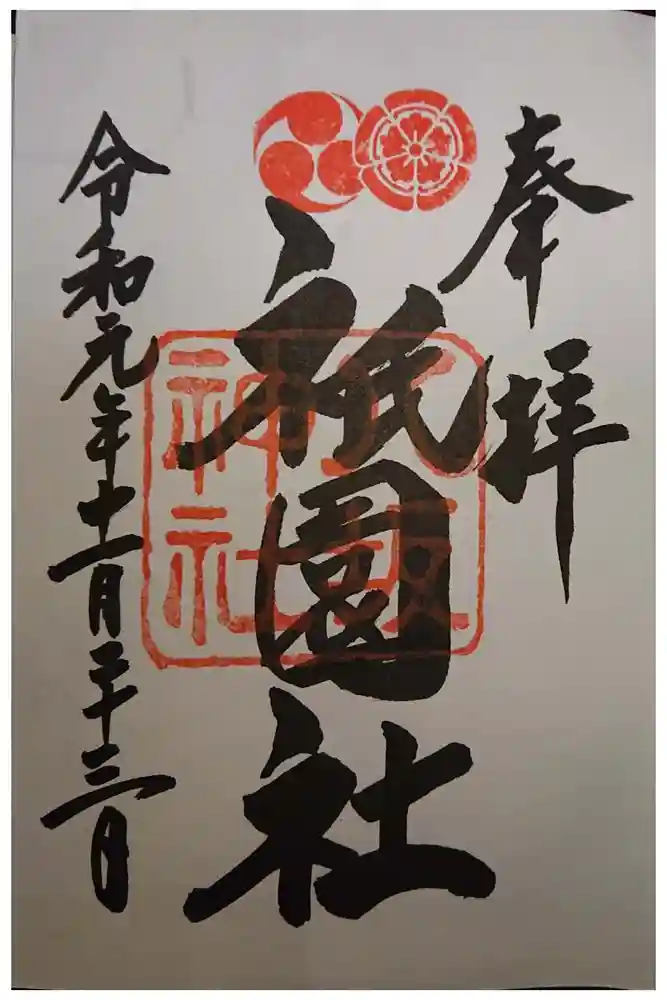 奉拝
祇園社
八坂神社
令和元年十一月二十三日